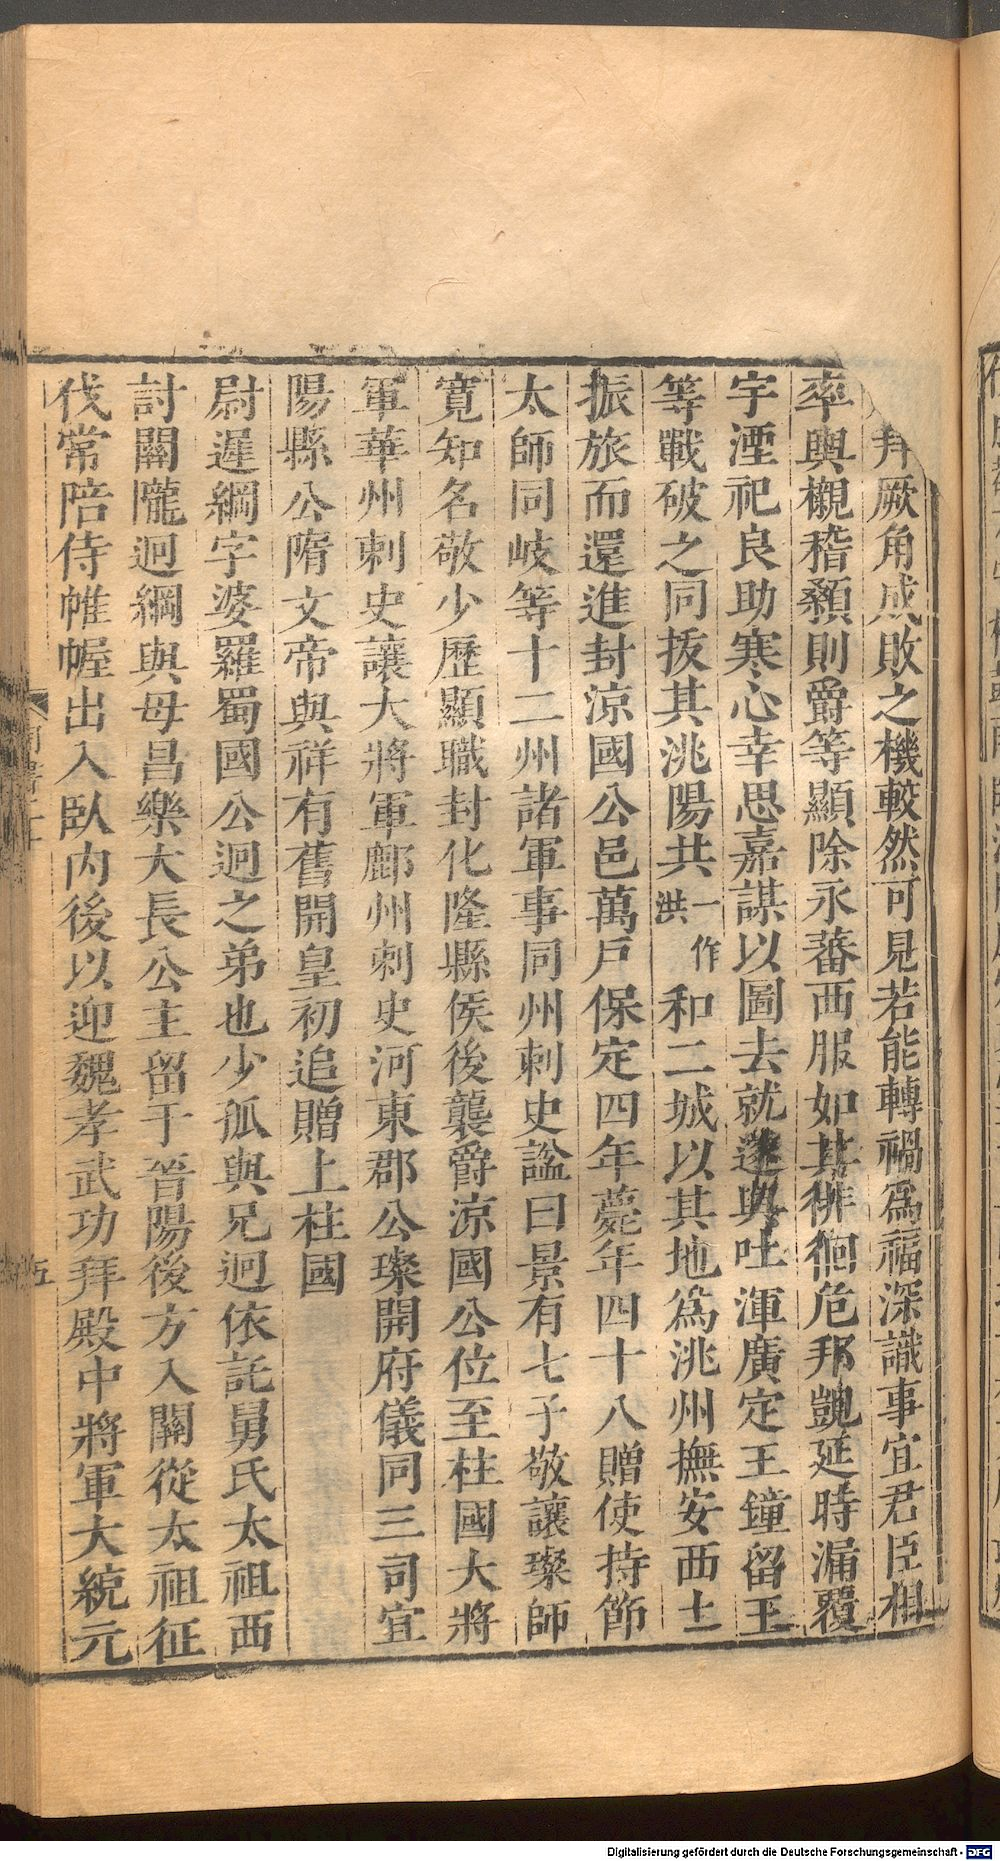 拜厥角成敗之機較然可見若能轉禍爲福深識事宜君臣相
率輿櫬稽顙則爵等顯除永蕃西服如其徘徊危邦覬延時漏覆
宇湮祀良助寒心幸思嘉謀以圖去就遂與吐渾廣定王鐘留王
等戰破之同拔其洮陽共一作洪和二城以其地爲洮州撫安西土
振旅而還進封凉國公邑萬戸保定四年薨年四十八贈使持節
太師同岐等十二州諸軍事同州刺史諡曰景有七子敬讓璨師
寬知名敬少歷顯職封化隆縣侯後襲爵凉國公位至柱國大將
軍華州刺史讓大將軍鄜州刺史河東郡公璨開府儀同三司宜
陽縣公隋文帝與祥有舊開皇初追贈上柱國
尉遲綱字婆羅蜀國公迥之弟也少孤與兄迥依託舅氏太祖西
討關隴迥綱與母昌樂大長公主留于晉陽後方入關從太祖征
伐常陪侍帷幄出入臥內後以迎魏孝武功拜殿中將軍大統元
五
Digitalisierung gefördert durch die Deutsche Forschungsgemeinschaft - DFG